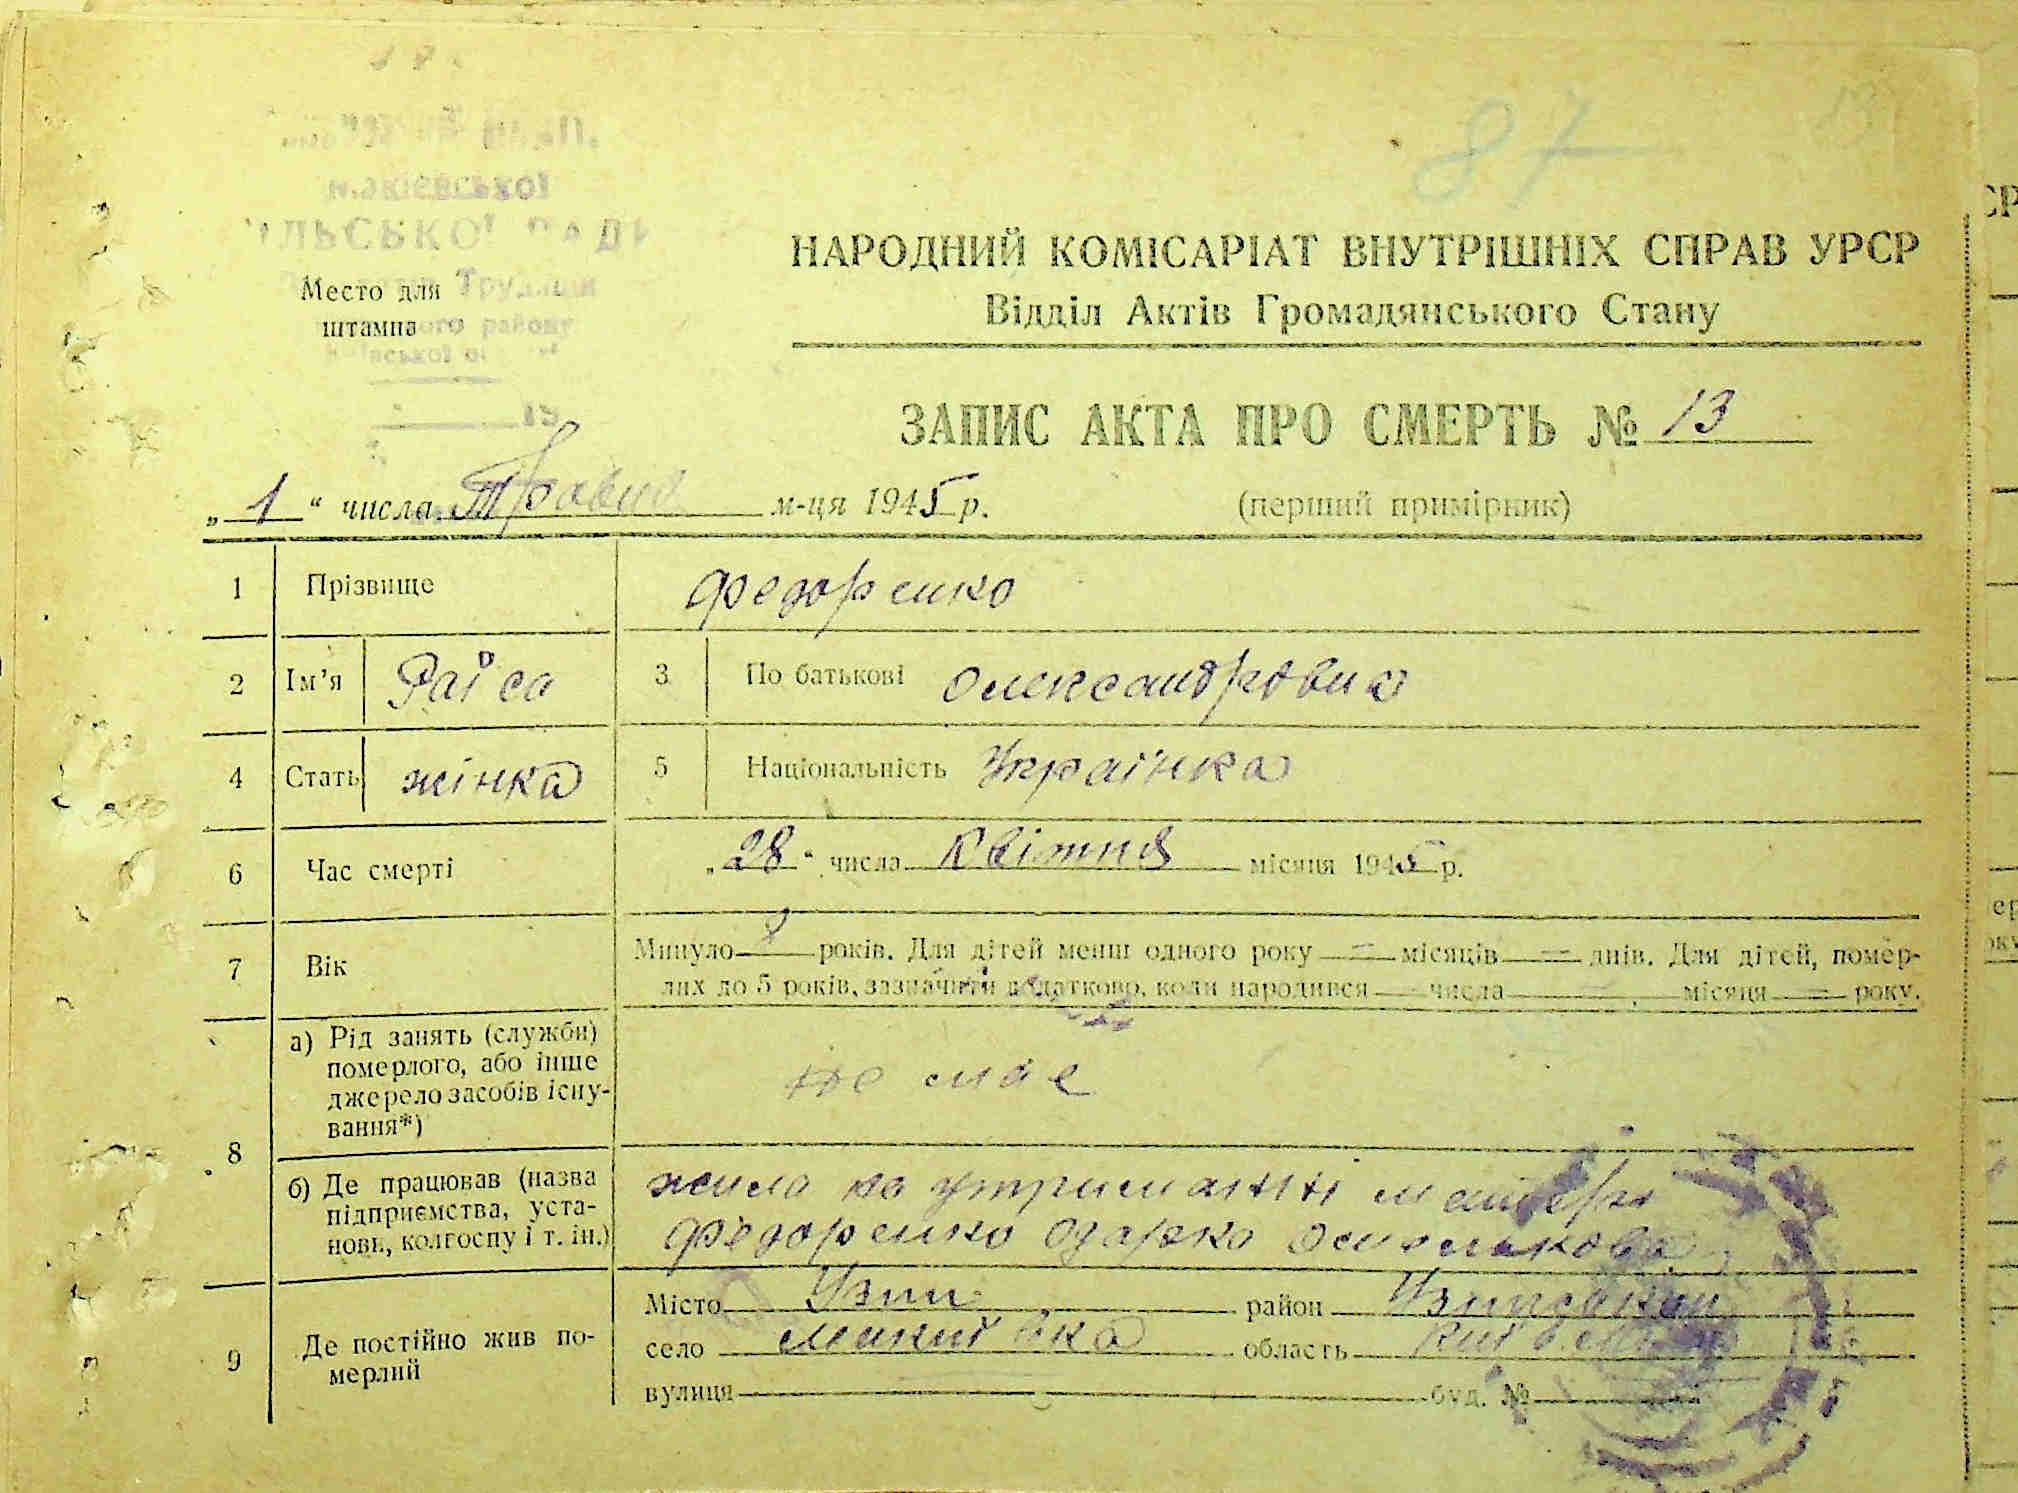 87
НАРОДНИЙ КОМІСАРІАТ ВНУТРІШНІХ СПРАВ УРСР
Відділ Актів Громадянського Стану
Место для
штампа
ЗАПИС АКТА ПРО СМЕРТЬ № 13
„ 1 “ числа Травня м-ця 1945 р. (перший примірник)
1 Прізвище Федоренко
2 Ім’я Раїса 3 По батькові Олександрівна
4 Стать жінка 5 Національність Українка
6 Час смерті „ 28 “ числа Квітня місяця 1945 р.
7 Вік Минуло років. Для дітей менш одного року — місяців — днів. Для дітей, помер-
лих до 5 років, зазначити додатково, коли народився — числа — місяця — року.
8 а) Рід занять (служби)
померлого, або інше
джерело засобів існу-
вання*) не має
б) Де працював (назва
підприємства, уста-
нови, колгоспу і т. ін.) жила на утриманні матери
Федоренко Одарка
9 Де постійно жив по-
мерлий
Місто Узин район Узинський
село область Київська
вулиця — буд. № —